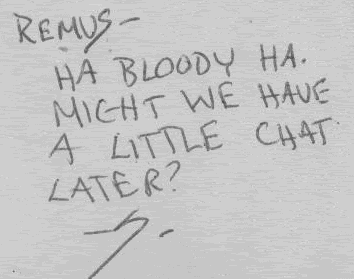 REMUS—
HA BLOODY HA.
MIGHT WE HAVE
A LITTLE CHAT
LATER?
—S.